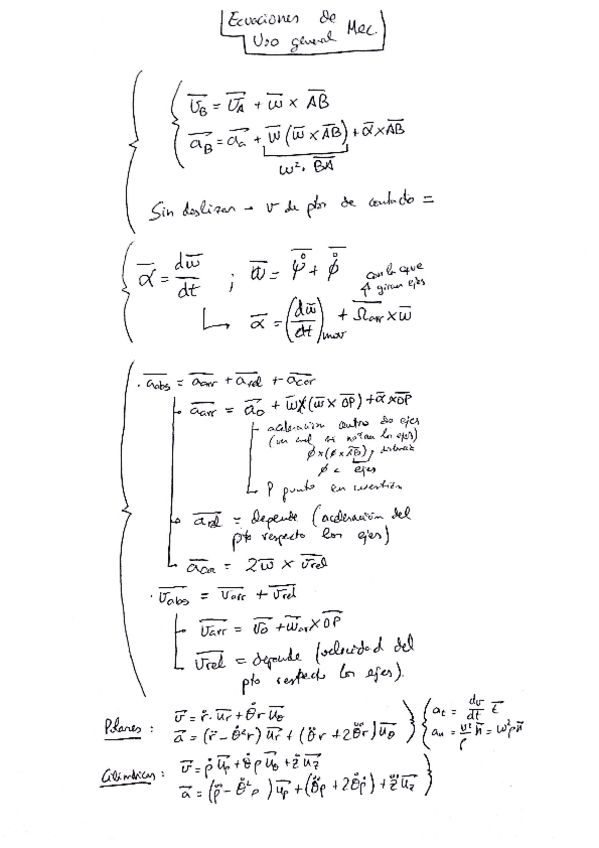 Ecuaciones de
Uso general Mec.
v̅_B = v̅_A + w̅ × A̅B̅
a̅_B = a̅_a + w̅ (w̅ × A̅B̅) + α̅ × A̅B̅
w² · B̅A̅
Sin deslizar → v de pto de contacto =
α̅ = dw̅/dt ; w̅ = ψ̊ + ϕ̊
con lo que
giran ejes
↳ α̅ = (dw̅/dt)mov + Ω̅arr × w̅
· a̅abs = a̅arr + a̅rel + a̅cor
a̅arr = a̅o + w̅ × (w̅ × O̅P̅) + α̅ × O̅P̅
aceleración centro de ejes
si notan los ejes)
ϕ × (ϕ × A̅B̅), distancia
ϕ ejes
P punto en cuestión
a̅rel = depende (aceleración del
pto respecto los ejes)
a̅cor = 2w̅ × v̅rel
· v̅abs = v̅arr + v̅rel
v̅arr = v̅o + w̅arr × O̅P̅
v̅rel = depende (velocidad del
pto respecto los ejes).
Polares : v̅ = ṙ · u̅r + θ̇ r u̅θ
a̅ = (r̈ - θ̇² r) u̅r + (θ̈ r + 2θ̇ṙ) u̅θ
at = dv/dt t̅
an = v²/ρ n̅ = w²ρ n̅
Cilíndricas : v̅ = ρ̇ u̅ρ + θ̇ ρ u̅θ + ż u̅z
a̅ = (ρ̈ - θ̇² ρ) u̅ρ + (θ̈ρ + 2θ̇ρ̇) + z̈ u̅z